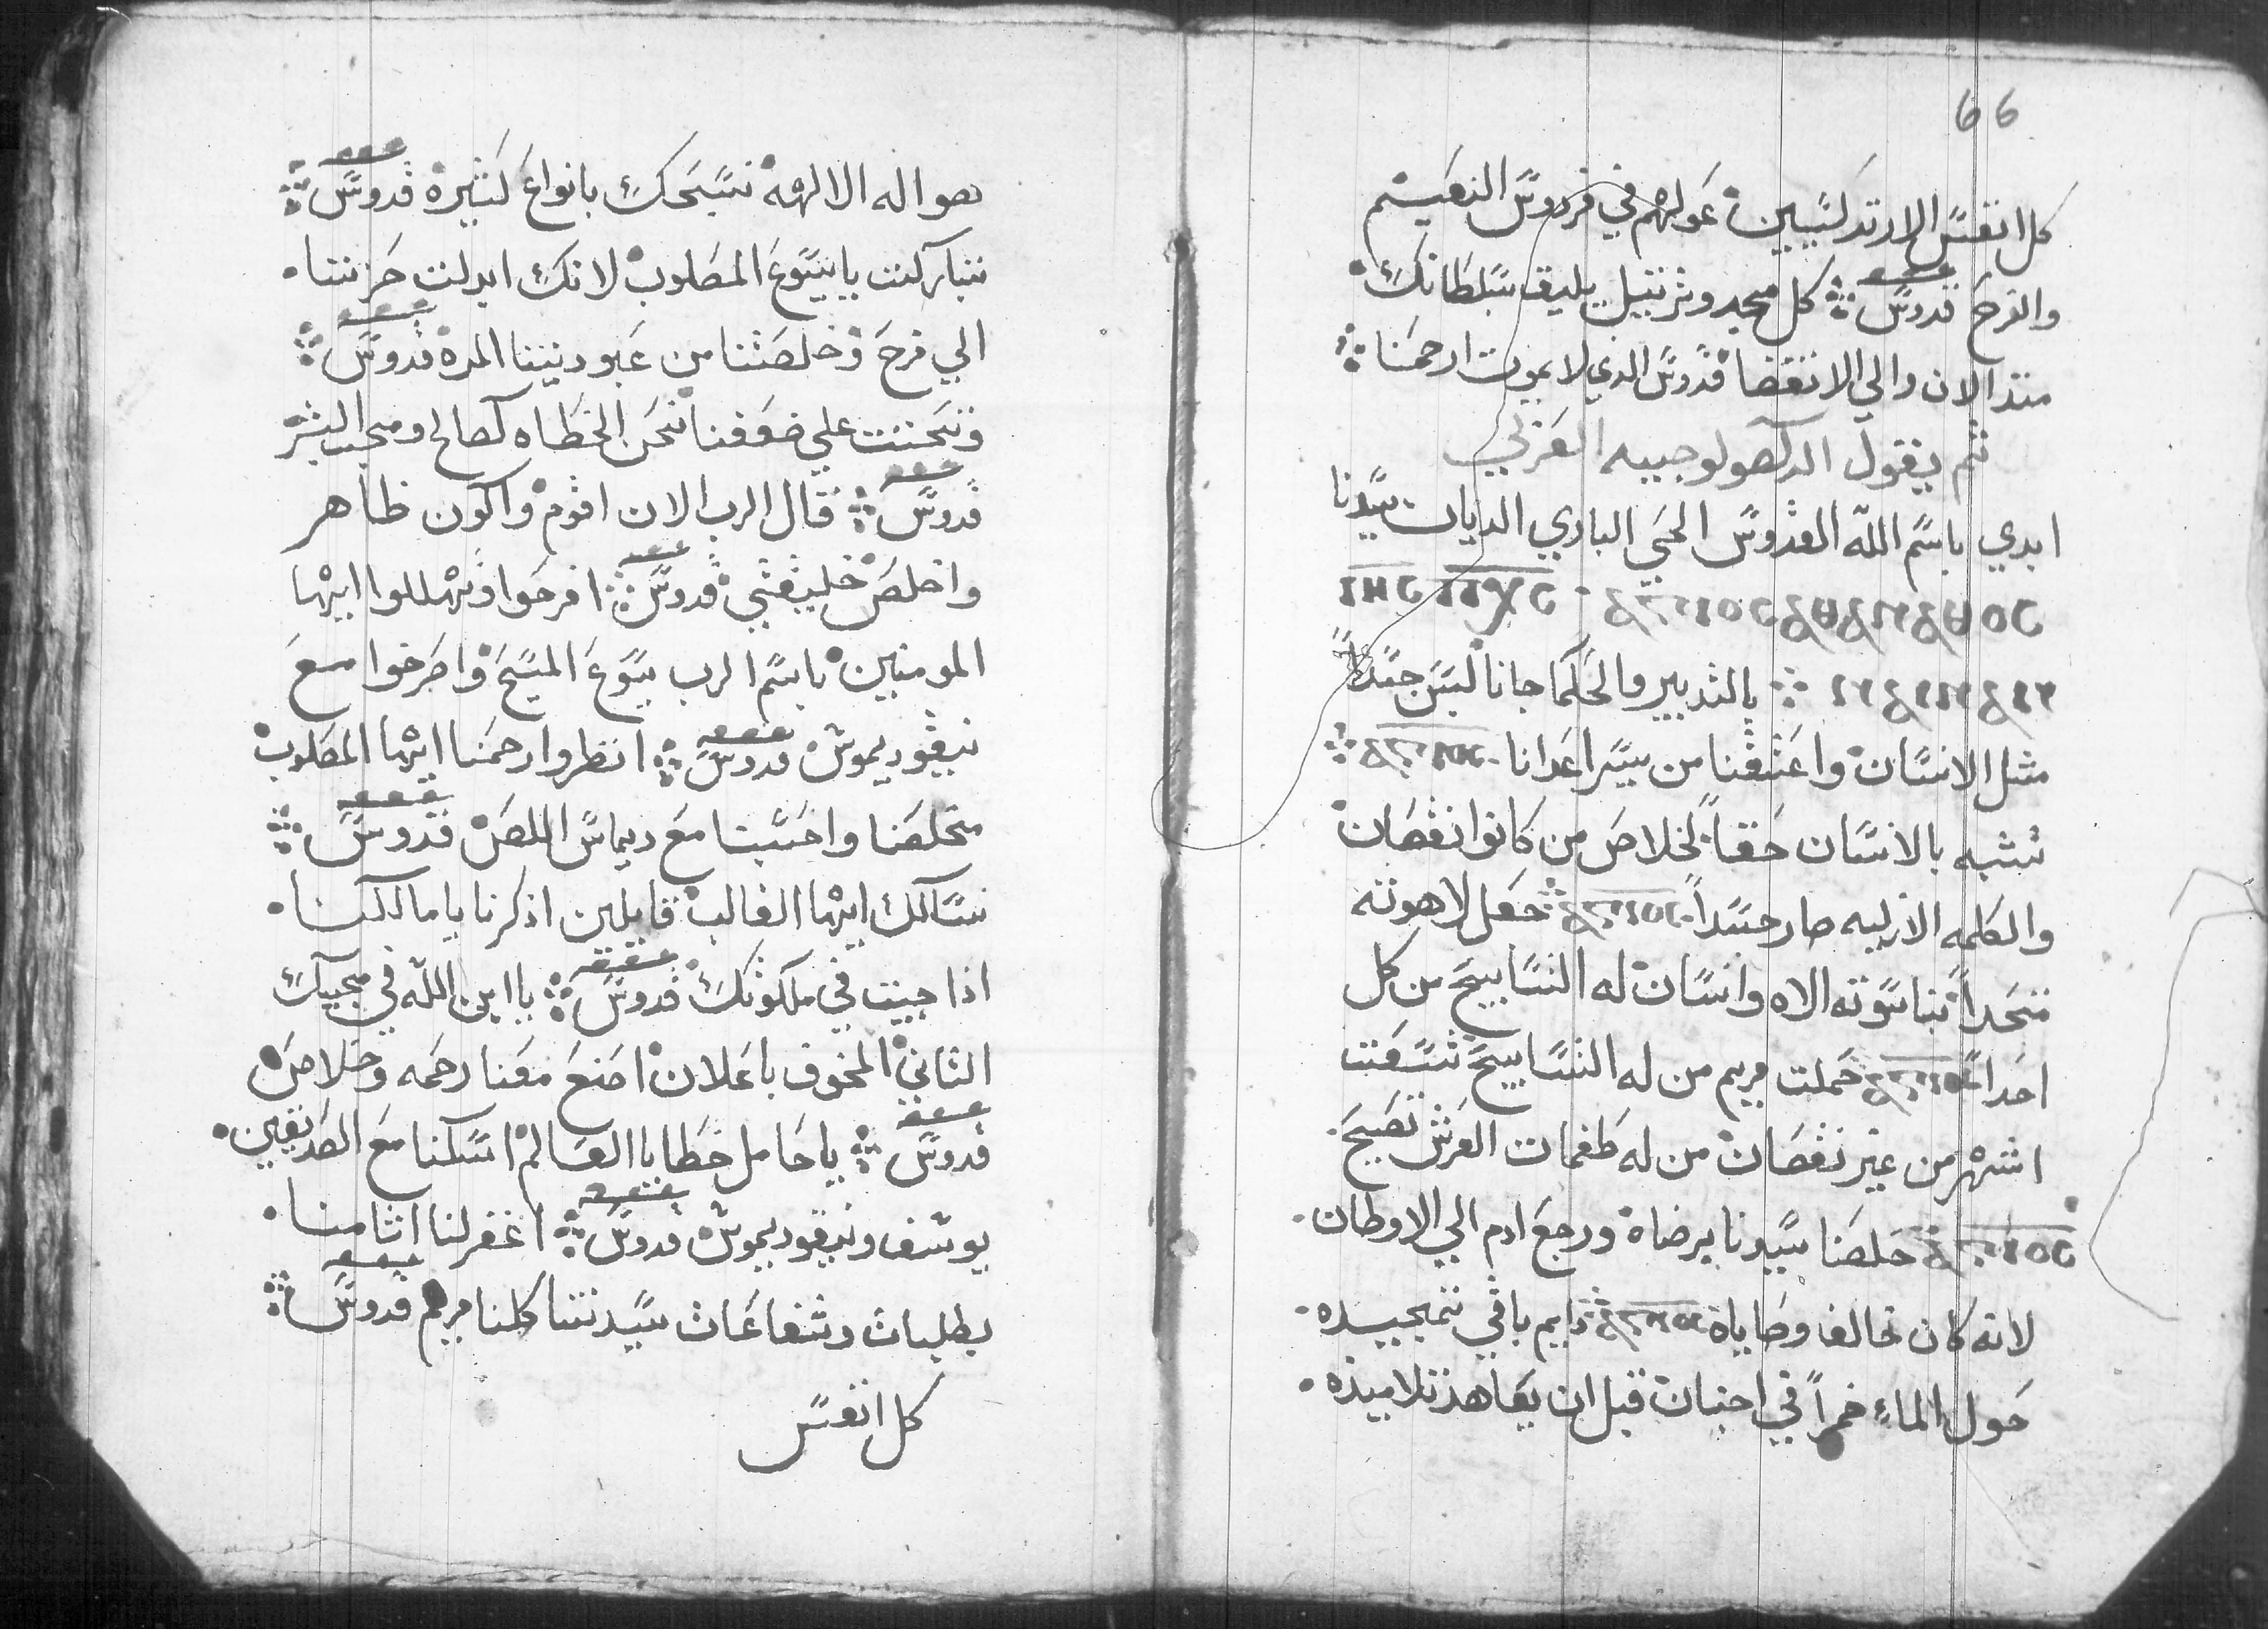 66
كل انفس الارتدكسيين عولهم في فردوس النعيم
والفرح قدوس كل مجد وترتيل يليق بسلطانك
منذ الان والي الانقضا قدوس الدي لا يموت ارحمنا
تم يقول الدكصولوجيه العربي
ابدي باسم الله القدوس الحي الباري الديان سيدنا
ⲓⲏⲥ ⲡⲭⲥ ⲁⲅⲓⲟⲥ ⲁⲑⲁⲛⲁⲧⲟⲥ
ⲛⲁⲓ ⲛⲁⲛ بالتدبير والحكما جانا لبس جسداً
مثل الانسان واعتقنا من يسر اعدانا ⲁⲅⲓⲟⲥ
تشبه بالانسان حقاً لخلاص من كانوا نقصان
والكلمه الازليه صار جسداً ⲁⲅⲓⲟⲥ جعل لاهوته
متحداً بناسوته الاه وانسان له التسابيح من كل
احداً ⲁⲅⲓⲟⲥ حملت مريم من له التسابيح تسعت
اشهر من غير نقصان من له طغمات العرش تصيح
ⲁⲅⲓⲟⲥ خلصنا سيدنا برضاه ورجع ادم الي الاوطان
لانه كان خالف وصاياه ⲁⲅⲓⲟⲥ دايم باقي تمجيده
حول الماء خمراً في اجنان قبل ان يعاهد تلاميذه
هو اله الالهة نسبحك بانواع كثيرة قدوس
تباركت يا يسوع المصلوب لانك ابدلت حزننا
الي فرح وخلصتنا من عبوديتنا المرة قدوس
وتحننت علي ضعفنا نحن الخطاه كصالح ومحب البشر
قدوس قال الرب الان اقوم واكون ظاهر
واخلص خليقتي قدوس افرحوا وتهللوا ايها
المومنين باسم الرب يسوع المسيح واصرخوا مع
نيقوديموس قدوس انظر وارحمنا ايها المصلوب
مخلصنا واحسبنا مع ديماس اللص قدوس
نسالك ايها الغالب قايلين اذكرنا يا مالكنا
اذا جيت في ملكوتك قدوس يا ابن الله في مجيك
الثاني المخوف باعلان اصنع معنا رحمه وخلاص
قدوس يا حامل خطايا العالم اسكنا مع الصديقين
يوسف ونيقوديموس قدوس اغفر لنا اثامنا
بطلبات وشفاعات سيدتنا كلنا مريم قدوس
كل انفس